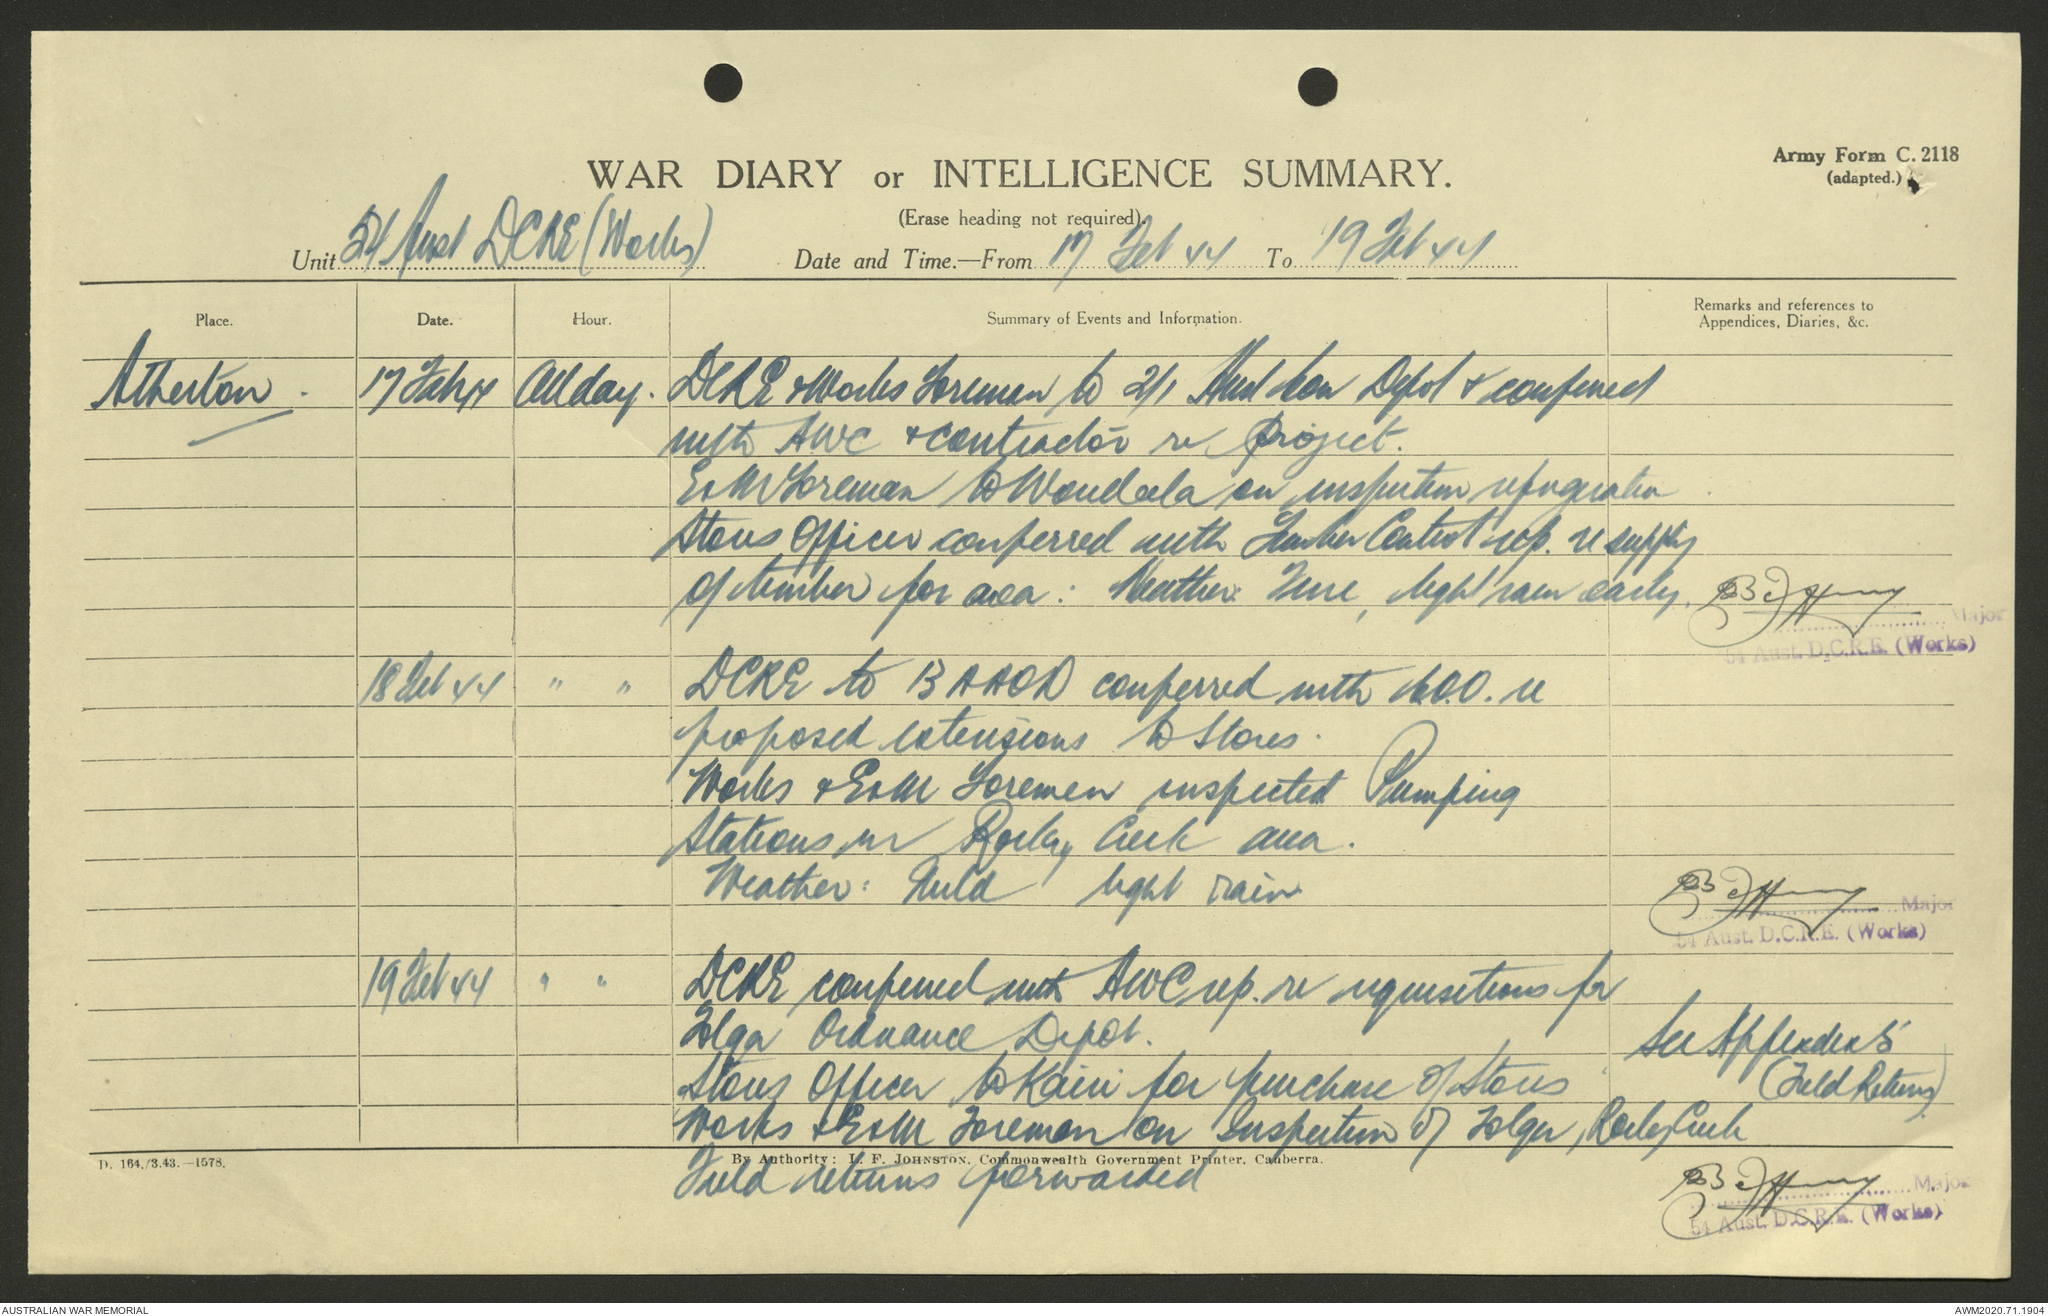 Army Form C. 2118
(adapted.)
WAR DIARY or INTELLIGENCE SUMMARY.
(Erase heading not required).
Unit 54 Aust DCRE (Works) Date and Time.—From 17 Feb 44 To 19 Feb 44
Place. Date. Hour. Summary of Events and Information. Remarks and references to Appendices, Diaries, &c.
Atherton. 17 Feb 44 All day. DCRE & Works Foreman to 2/1 Aust Con Depot & conferred
with AWC & contractor re project.
E&M Foreman to Wondecla on inspection refrigeration
Stores Officer conferred with Timber Control rep. re supply
of timber for area: Weather: Fine, light rain early.
Major
54 Aust. D.C.R.E. (Works)
18 Feb 44 " " DCRE to 13 AAOD conferred with C.O.O. re
proposed extensions to Stores.
Works & E&M Foremen inspected Pumping
Stations in Rocky Creek area.
Weather: Mild light rain
Major
54 Aust. D.C.R.E. (Works)
19 Feb 44 " " DCRE conferred with AWC rep. re requisitions for
Tolga Ordnance Depot.
See Appendix 5
Stores Officer to Kairi for purchase of Stores
(Field Returns)
Works & E&M Foreman on Inspection of Tolga, Rocky Creek
D. 164./3.43.—1578. By Authority: L. F. Johnston, Commonwealth Government Printer, Canberra.
Field returns forwarded
Major
54 Aust. D.C.R.E. (Works)
AUSTRALIAN WAR MEMORIAL AWM2020.71.1904